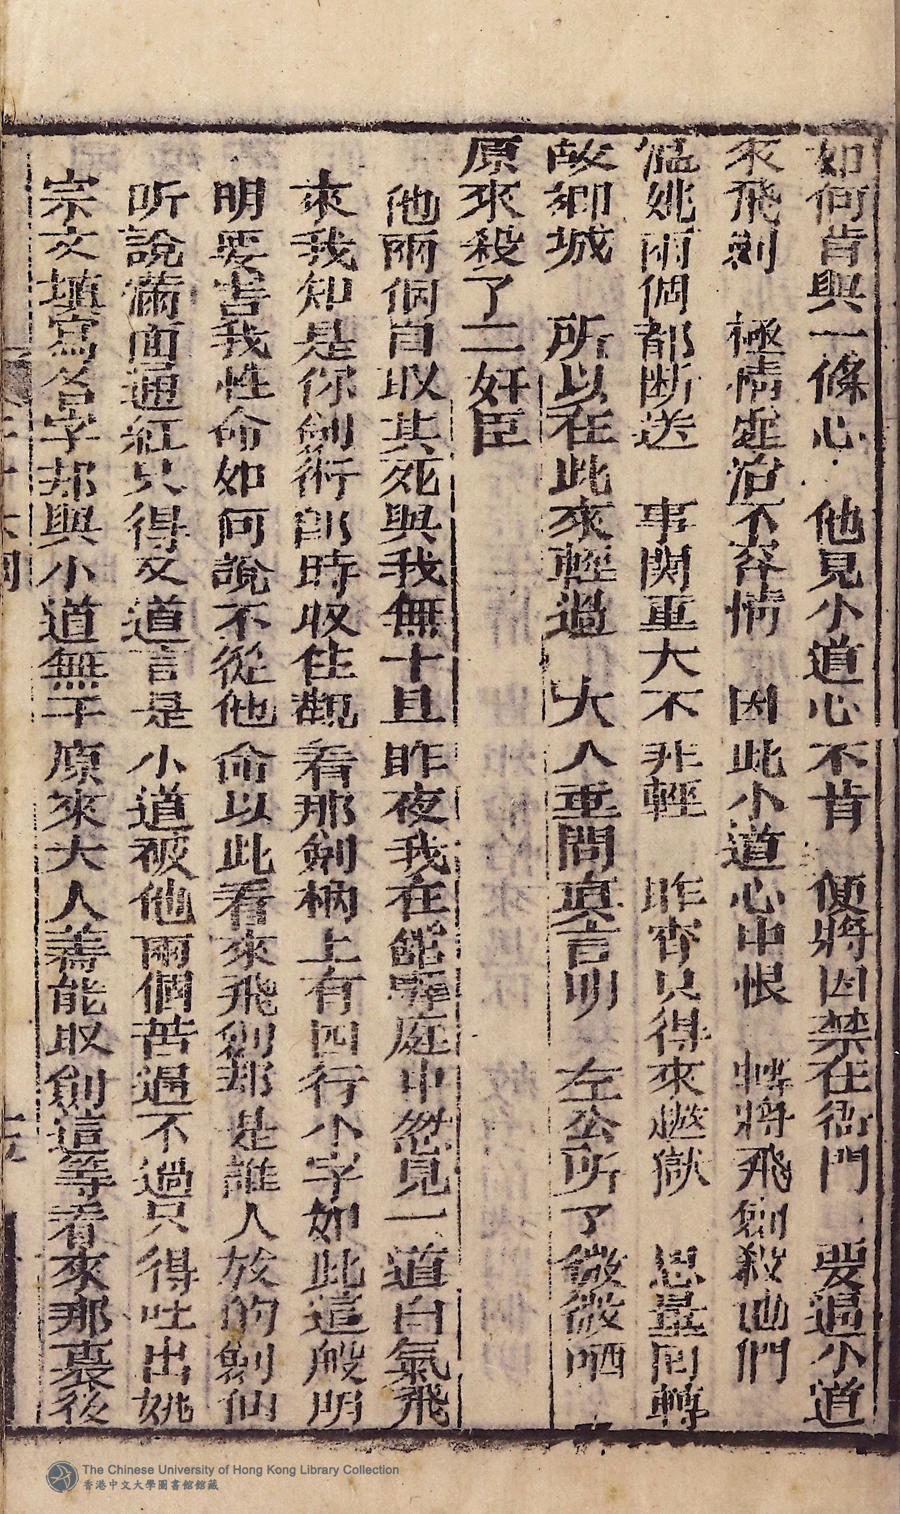 如何肯與一條心 他見小道心不肯 便將囚禁在衙門 要逼小道
來飛劍 極情處治不容情 因此小道心中恨 轉將飛劍殺他們
溫姚兩個都断送 事関重大不非輕 昨宵只得來越獄 思量囘轉
故鄉城 所以在此來輕過 大人垂問真言明 左公听了微微哂
原來殺了二奸臣
他兩個自取其死與我無干且昨夜我在館驛庭中忽見一道白氣飛
來我知是你劍術即時収住觀看那劍柄上有四行小字如此這般明
明要害我性命如何說不從他命以此看來飛劍却是誰人放的劍仙
听說滿面通紅只得又道言是小道被他兩個苦逼不過只得吐出姚
宗文填寫名字却與小道無干原來大人善能収劍這等看來那裏後